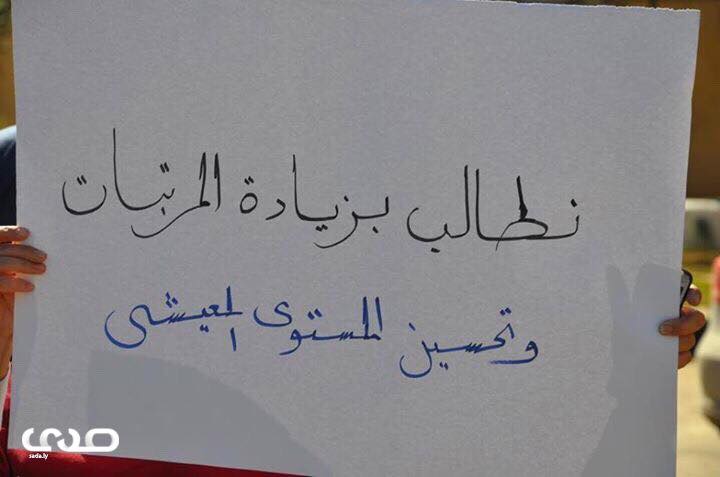 نطالب بزيادة المرتبات
وتحسين المستوى المعيشى
صدى
sada.ly